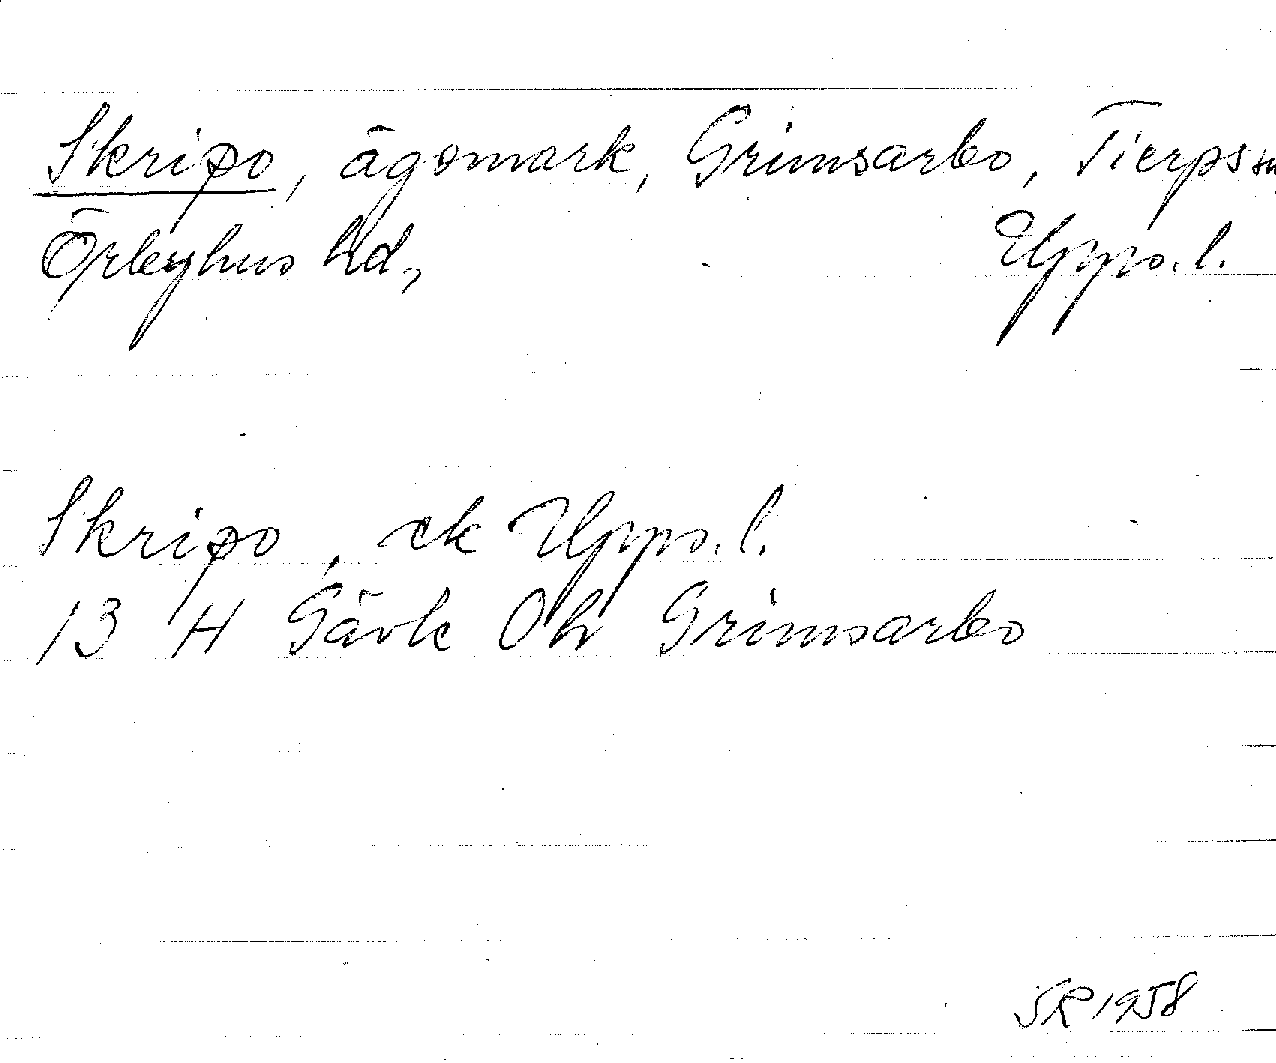 Skripo, ägomark, Grimsarbo, Tierps sn
Örbyhus hd, Upps. l.
Skripo, ek Upps. l.
13 H Gävle Ok Grimsarbo
SR 1958